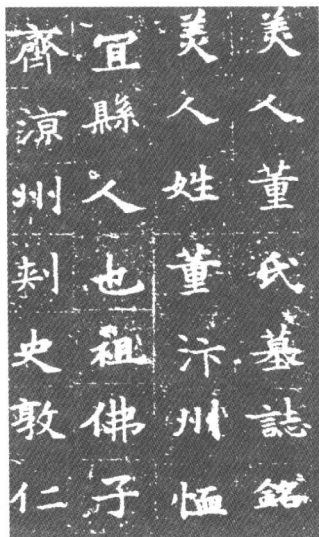 美人董氏墓誌銘
美人姓董汴州恤
宜縣人也祖佛子
齊涼州刺史敦仁